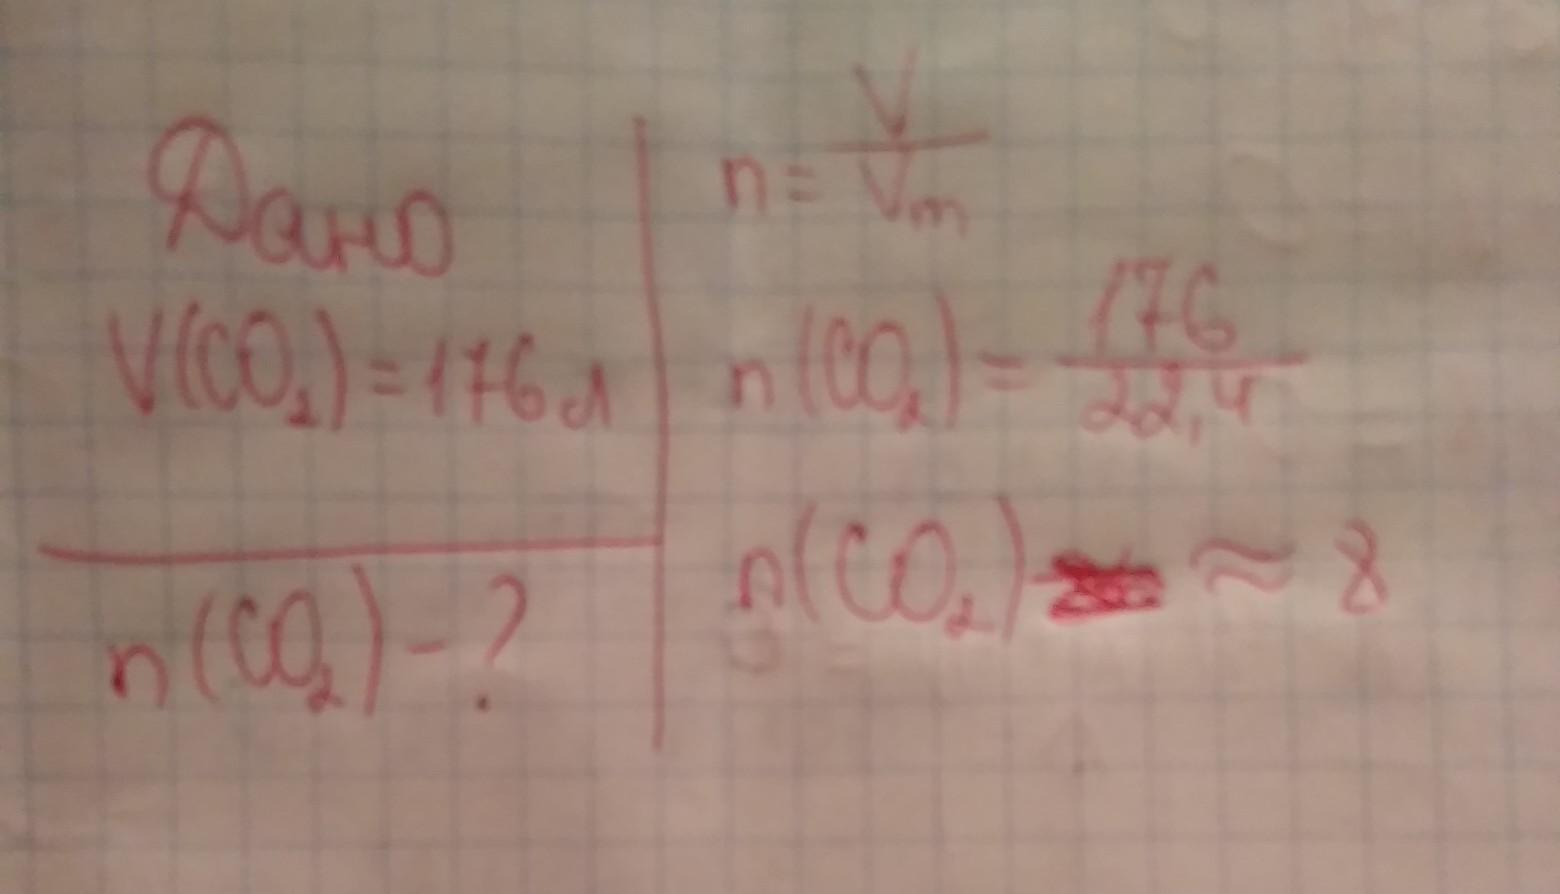 Дано
V(CO₂)=176л
n(CO₂)-?
n=V/Vm
n(CO₂)=176/22,4
n(CO₂)≈8